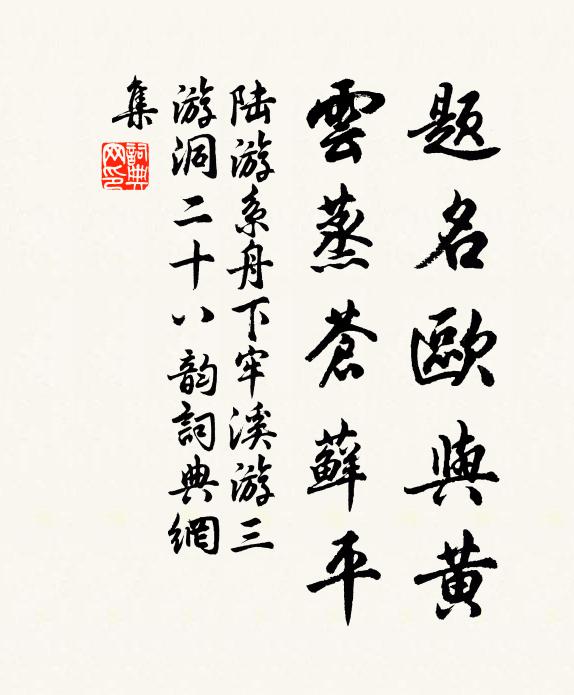 題名歐與黄
雲蒸蒼蘚平
陆游系舟下牢溪游三
游洞二十八韵詞典網
集
詞典网印